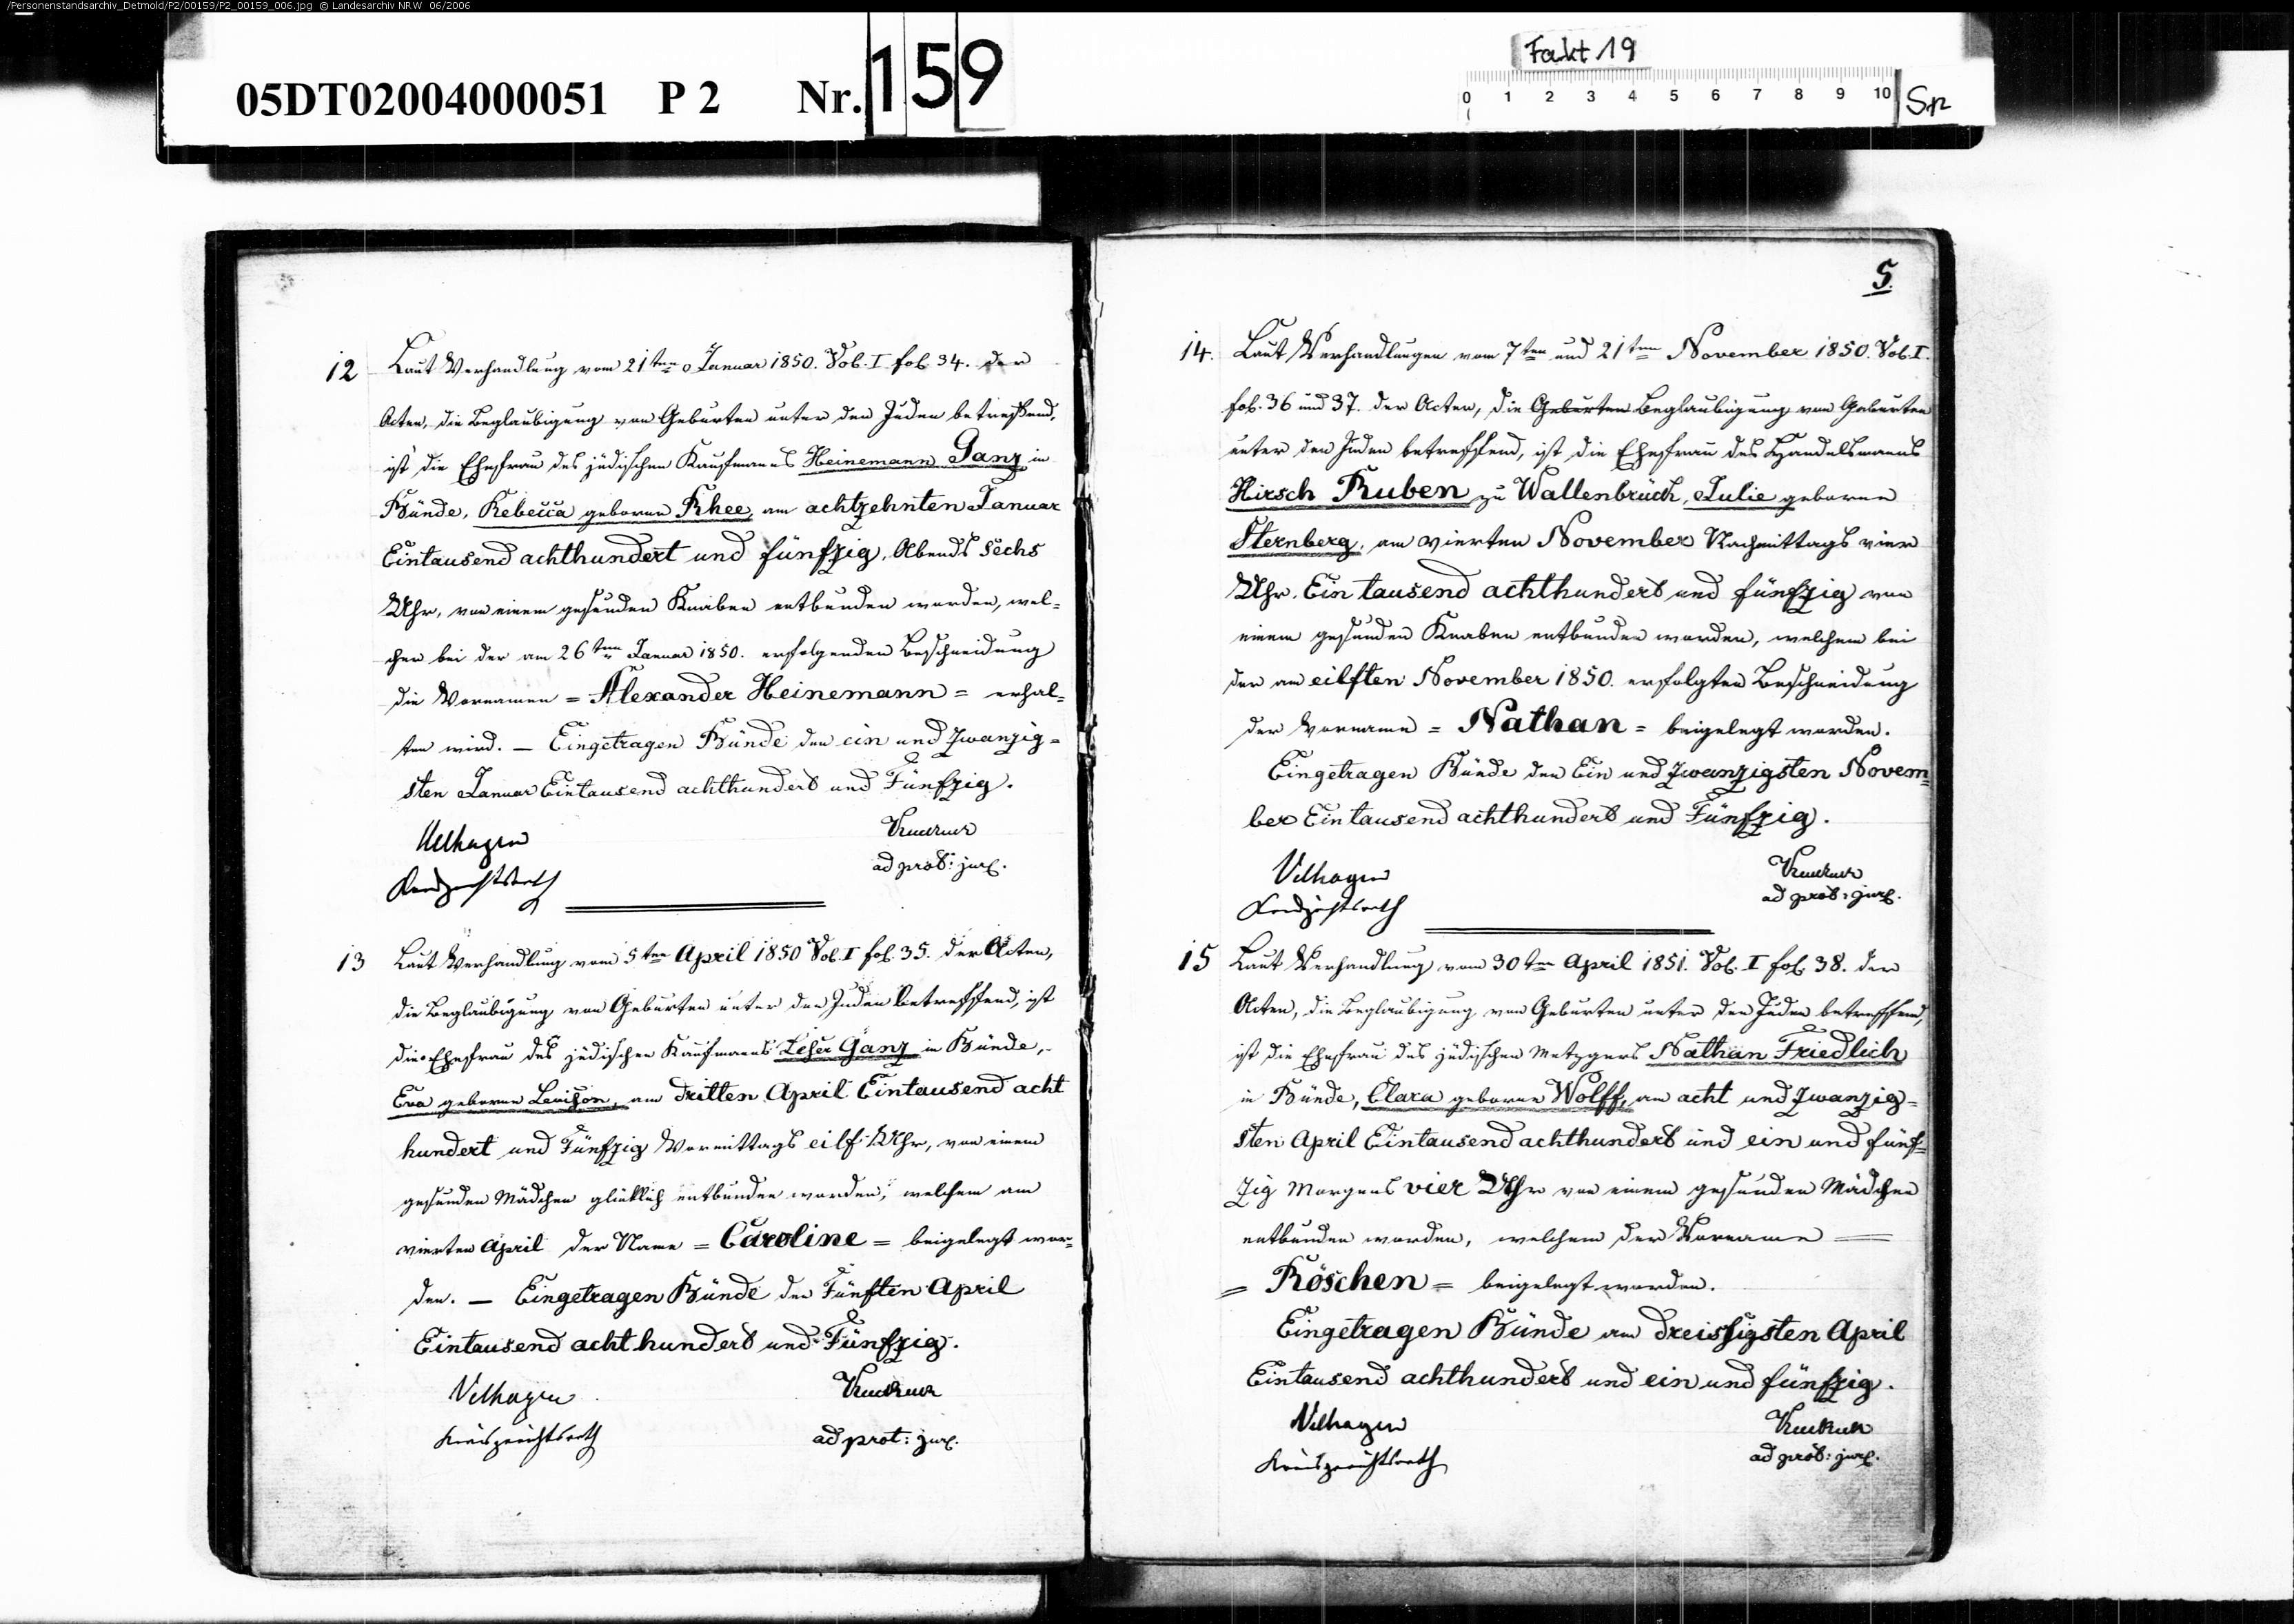 /Personenstandsarchiv_Detmold/P2/00159/P2_00159_006.jpg © Landesarchiv NRW 06/2006
05DT02004000051 P 2 Nr. 159
Fakt 19
0 1 2 3 4 5 6 7 8 9 10
12 Laut Verhandlung vom 21ten Januar 1850. Vol. I fol. 34. der
Acten, die Beglaubigung von Geburten unter den Juden betreffend,
ist die Ehefrau des jüdischen Kaufmanns Heinemann Ganz in
Bünde, Rebecca geborne Rhee, am achtzehnten Januar
Eintausend achthundert und fünfzig, Abends sechs
Uhr, von einem gesunden Knaben entbunden worden, wel-
cher bei der am 26ten Januar 1850. erfolgenden Beschneidung
die Vornamen = Alexander Heinemann = erhal-
ten wird. — Eingetragen Bünde den ein und zwanzig-
sten Januar Eintausend achthundert und Fünfzig.
Velhagen
ad prot: jur.
13 Laut Verhandlung vom 5ten April 1850 Vol. I fol. 35. der Acten,
die Beglaubigung von Geburten unter den Juden betreffend, ist
die Ehefrau des jüdischen Kaufmanns Leser Ganz in Bünde,
Eva geborne Levison, am dritten April Eintausend acht
hundert und Fünfzig Vormittags eilf Uhr, von einem
gesunden Mädchen glücklich entbunden worden, welchem am
vierten April der Name = Caroline = beigelegt wor-
den. — Eingetragen Bünde den Fünften April
Eintausend acht hundert und Fünfzig.
Velhagen
Kreisgerichtsrath
ad prot: jur.
5.
14. Laut Verhandlungen vom 7ten und 21ten November 1850. Vol. I.
fol. 36 und 37. der Acten, die Geburten Beglaubigung von Geburten
unter den Juden betreffend, ist die Ehefrau des Handelsmanns
Hirsch Ruben zu Wallenbrück, Julie geborne
Sternberg, am vierten November Nachmittags vier
Uhr, Ein tausend achthundert und fünfzig von
einem gesunden Knaben entbunden worden, welchem bei
der am eilften November 1850. erfolgten Beschneidung
der Vorname = Nathan = beigelegt worden.
Eingetragen Bünde den Ein und zwanzigsten Novem=
ber Eintausend achthundert und Fünfzig.
Velhagen
ad prot: jur.
15 Laut Verhandlung vom 30ten April 1851. Vol. I fol. 38. der
Acten, die Beglaubigung von Geburten unter den Juden betreffend,
ist die Ehefrau des jüdischen Metzgers Nathan Friedlich
in Bünde, Clara geborne Wolff, am acht und zwanzig=
sten April Eintausend achthundert und ein und fünf=
zig Morgens vier Uhr von einem gesunden Mädchen
entbunden worden, welchem der Vorname =
= Röschen = beigelegt worden.
Eingetragen Bünde am dreissigsten April
Eintausend achthundert und ein und fünfzig.
Velhagen
Kreisgerichtsrath
ad prot: jur.